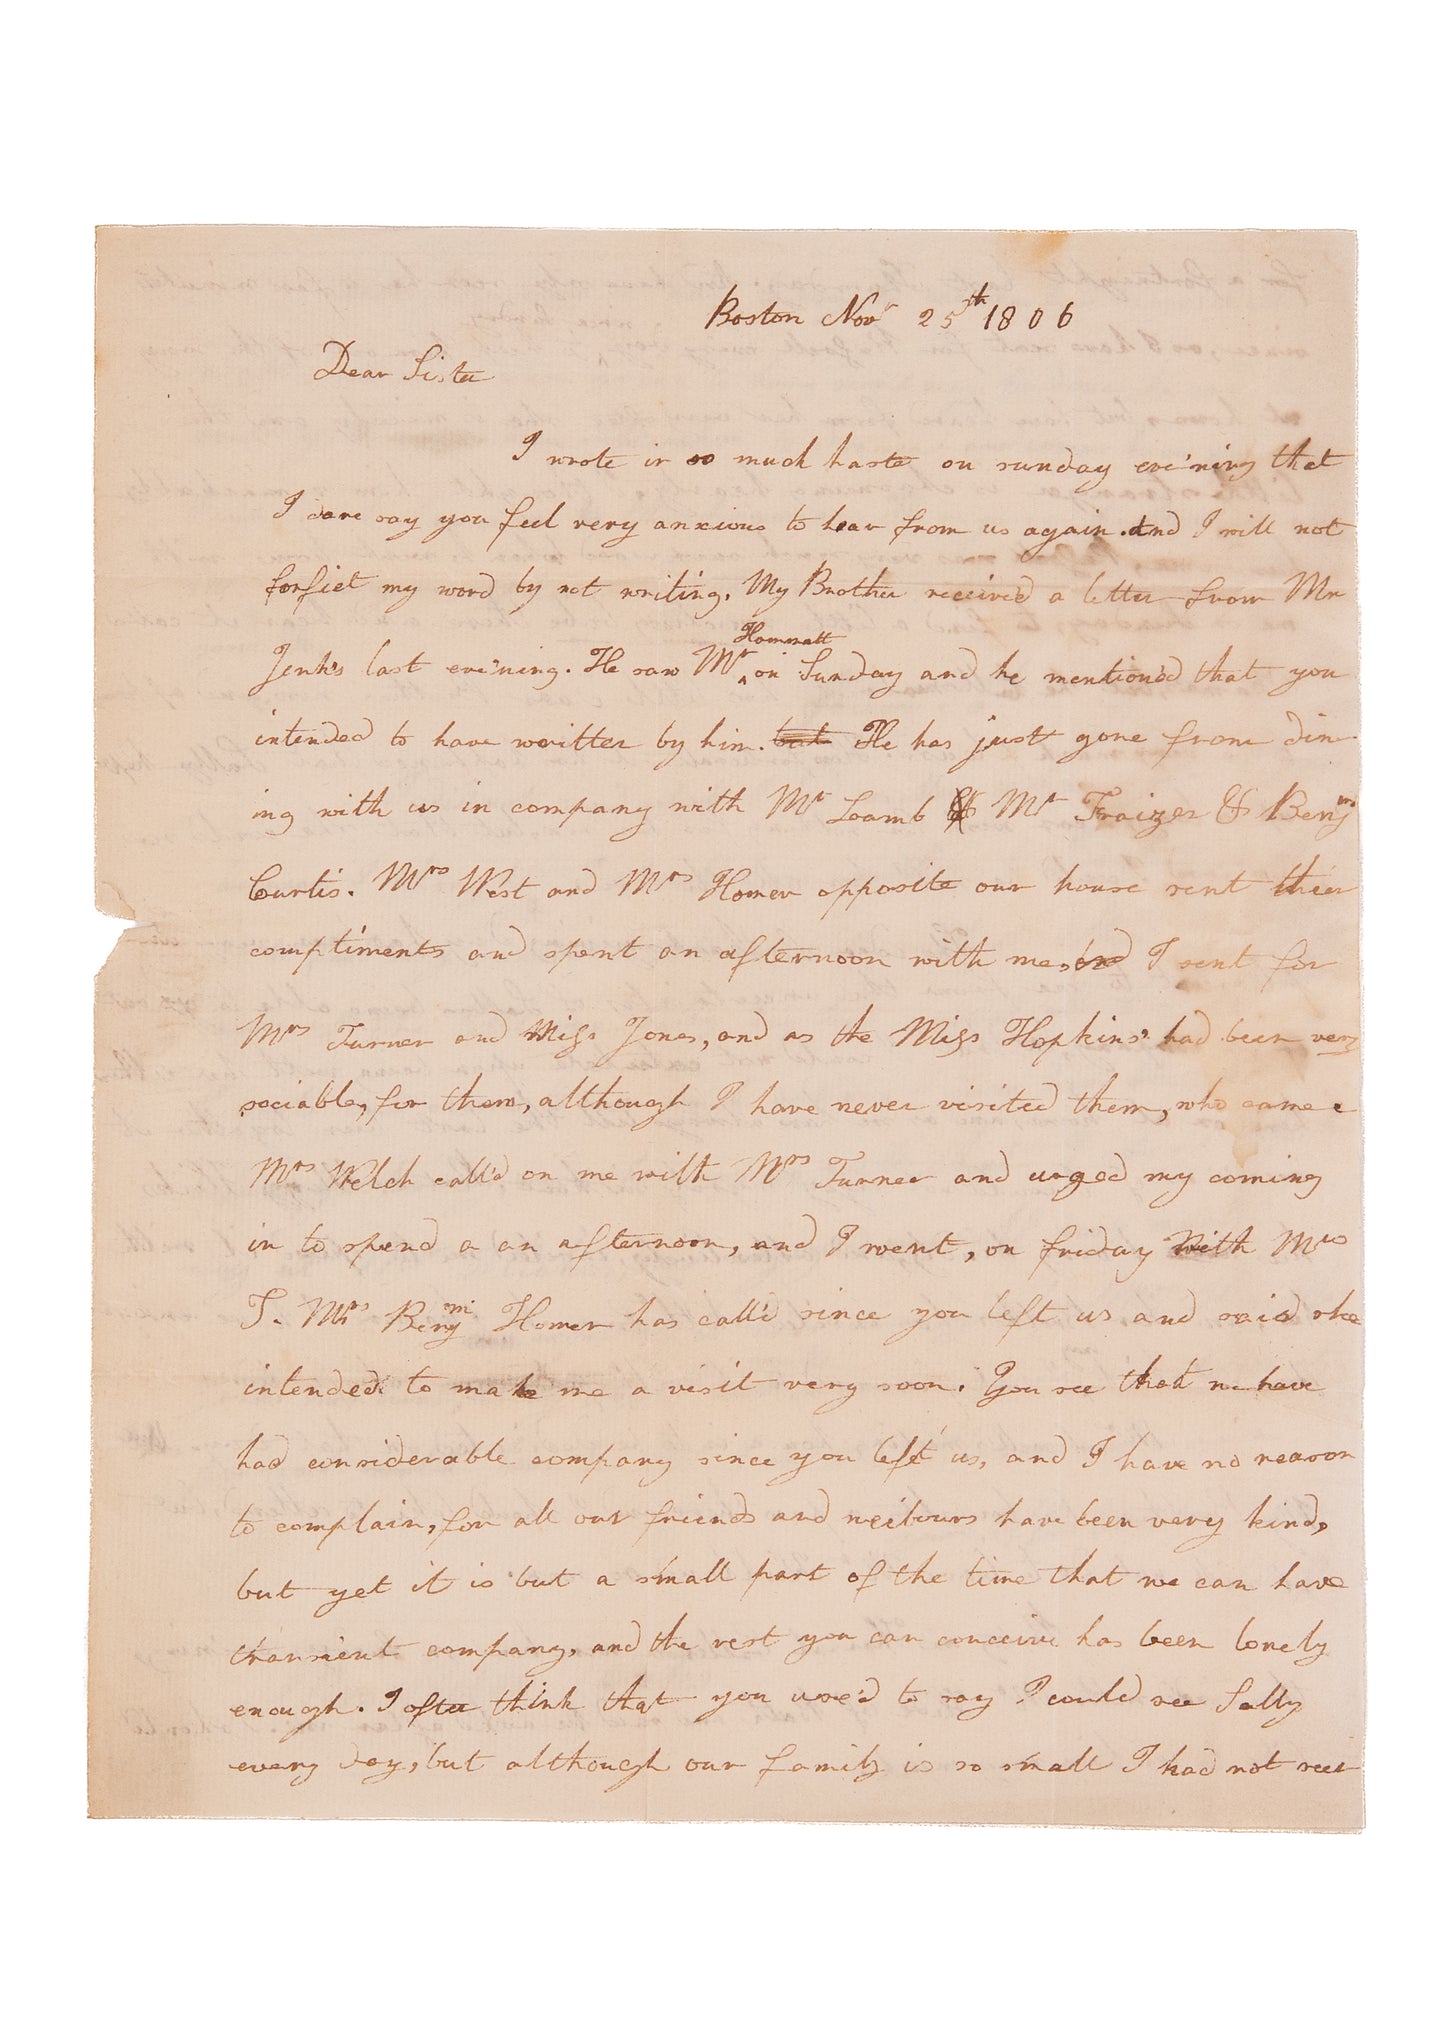 Boston Nov.r 25th 1806
Dear Sister
I wrote in so much haste on sunday eve'ning that
I dare say you feel very anxious to hear from us again. And I will not
forfiet my word by not writing. My Brother receiv'd a letter from Mr
Jenks last eve'ning. He saw Mr Hammatt on Sunday and he mention'd that you
intended to have writter by him. but He has just gone from din-
ing with us in company with Mr Lamb & Mr Fraizer & Benjm
Curtis. Mrs West and Mrs Homer opposite our house sent thier
compliments and spent an afternoon with me, and I sent for
Mrs Turner and Miss Jones, and as the Miss Hopkins' had been very
sociable, for them, although I have never visited them, who came
Mrs Welch call'd on me with Mrs Turner and urged my coming
in to spend a an afternoon, and I went, on friday with Mrs
T. Mrs Benjm Homer has call'd since you left us and said she
intended to make me a visit very soon. You see that we have
had considerable company since you left us, and I have no reason
to complain, for all our friends and neibours have been very kind,
but yet it is but a small part of the time that we can have
transient company, and the rest you can conceive has been lonely
enough. I often think that you use'd to say I could see Sally
every day, but although our family is so small I had not seen